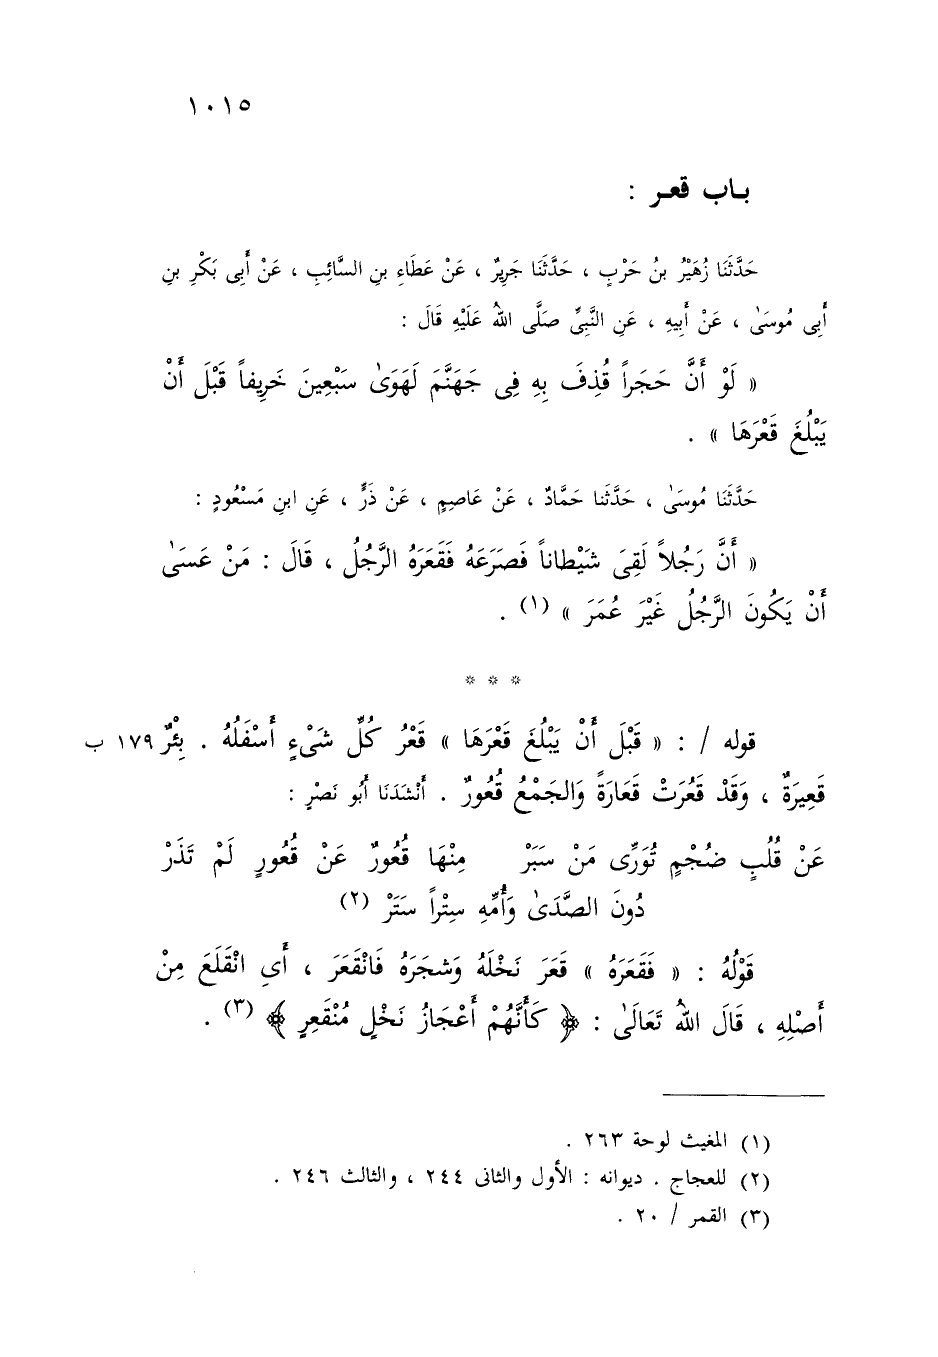 ١٠١٥
باب قعر :
حَدَّثَنَا زُهَيْرُ بنُ حَرْبٍ ، حَدَّثَنَا جَرِيرٌ ، عَنْ عَطَاءِ بنِ السَّائِبِ ، عَنْ أَبِى بَكْرِ بنِ
أَبِى مُوسَىٰ ، عَنْ أَبِيهِ ، عَنِ النَّبِىِّ صَلَّى اللهُ عَلَيْهِ قَالَ :
« لَوْ أَنَّ حَجَراً قُذِفَ بِهِ فِى جَهَنَّمَ لَهَوَىٰ سَبْعِينَ خَرِيفاً قَبْلَ أَنْ
يَبْلُغَ قَعْرَهَا » .
حَدَّثَنَا مُوسَىٰ ، حَدَّثَنا حَمَّادٌ ، عَنْ عَاصِمٍ ، عَنْ ذَرٍّ ، عَنِ ابنِ مَسْعُودٍ :
« أَنَّ رَجُلاً لَقِىَ شَيْطاناً فَصَرَعَهُ فَقَعَرَهُ الرَّجُلُ ، قَالَ : مَنْ عَسَىٰ
أَنْ يَكُونَ الرَّجُلُ غَيْرَ عُمَرَ » (١) .
* * *
قوله / : « قَبْلَ أَنْ يَبْلُغَ قَعْرَهَا » قَعْرُ كُلِّ شَىْءٍ أَسْفَلُهُ . بِئْرٌ ١٧٩ ب
قَعِيرَةٌ ، وَقَدْ قَعُرَتْ قَعَارَةً وَالجَمْعُ قُعُورٌ . أَنْشَدَنَا أَبُو نَصْرٍ :
عَنْ قُلُبٍ ضُجْمٍ تُوَرِّى مَنْ سَبَرْ مِنْهَا قُعُورٌ عَنْ قُعُورٍ لَمْ تَذَرْ
دُونَ الصَّدَىٰ وَأُمِّهِ سِتْراً سَتَرْ (٢)
قَوْلُهُ : « فَقَعَرَهُ » قَعَرَ نَخْلَهُ وَشجَرَهُ فَانْقَعَرَ ، أَىِ انْقَلَعَ مِنْ
أَصْلِهِ ، قَالَ اللهُ تَعَالَىٰ : ﴿ كَأَنَّهُمْ أَعْجَازُ نَخْلٍ مُنْقَعِرٍ ﴾ (٣) .
(١) المغيث لوحة ٢٦٣ .
(٢) للعجاج . ديوانه : الأول والثانى ٢٤٤ ، والثالث ٢٤٦ .
(٣) القمر / ٢٠ .